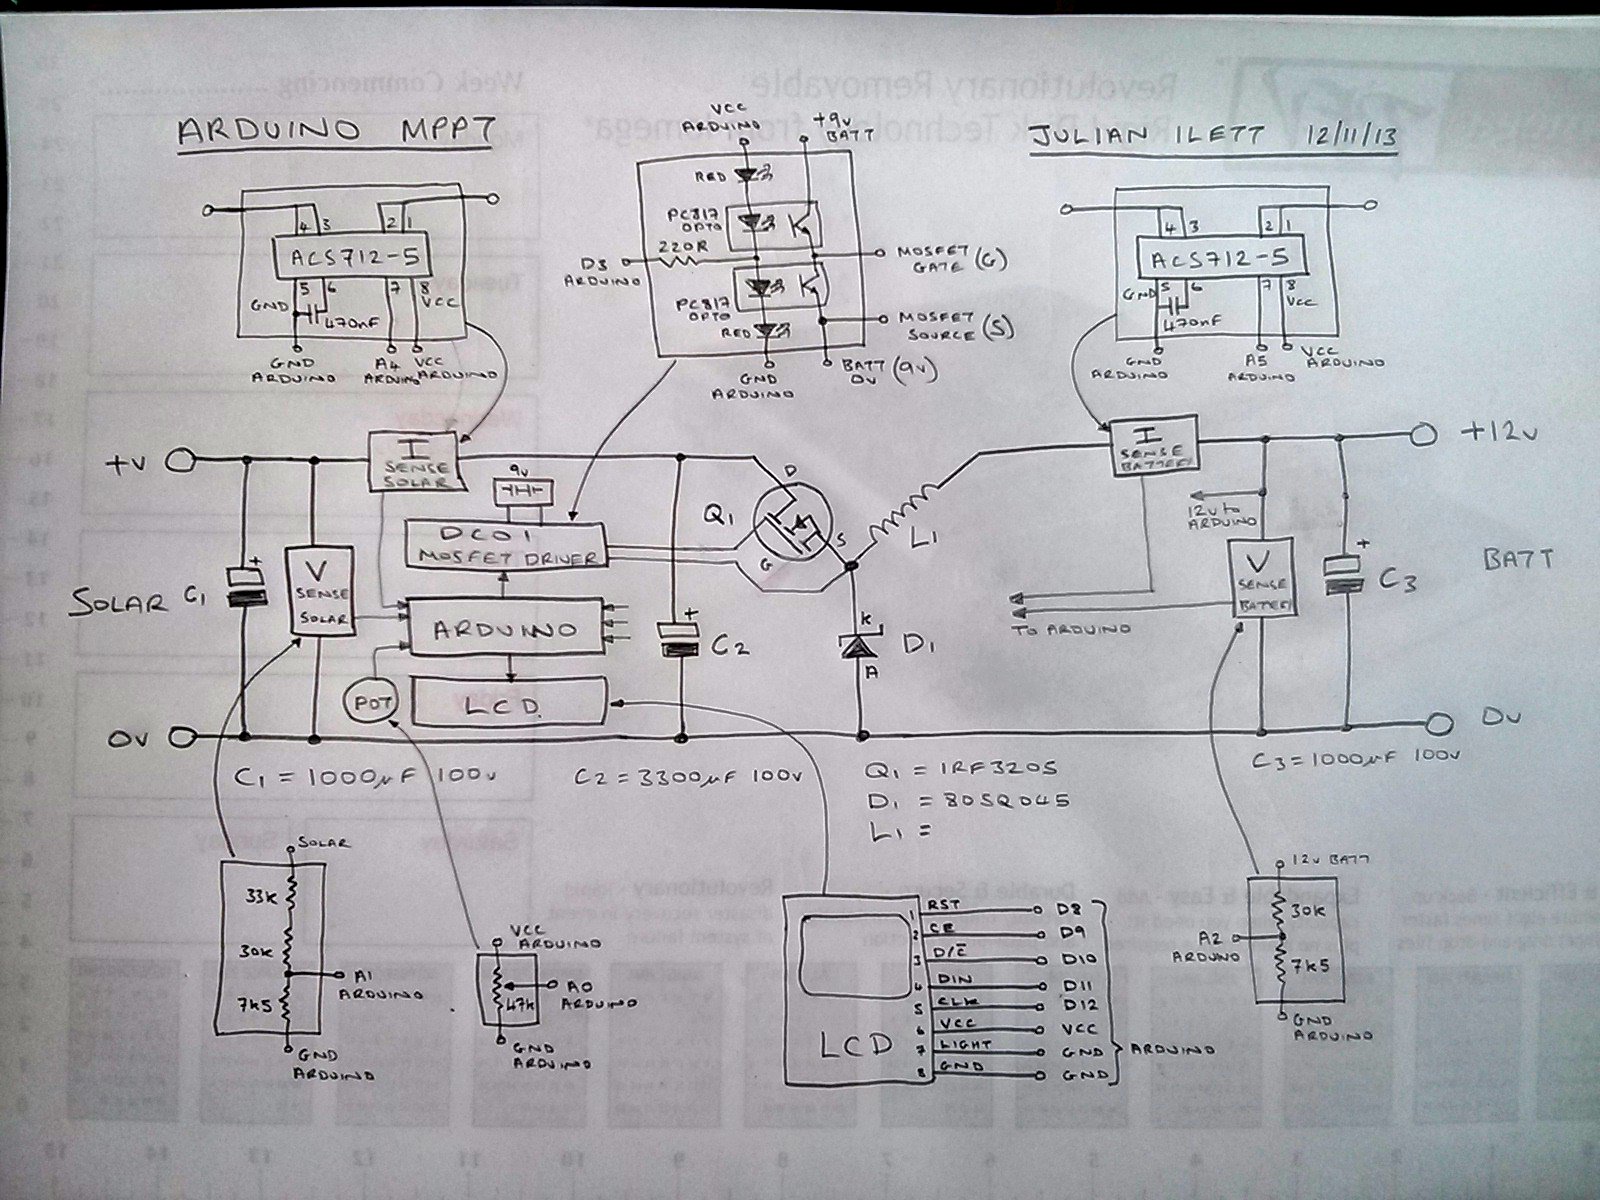 ARDUINO MPPT
JULIAN ILETT 12/11/13
4 3 2 1
ACS712-5
5 6 7 8
GND
VCC
470nF
GND
ARDUINO
A4
ARDUINO
VCC
ARDUINO
VCC
ARDUINO
+9v
BATT
RED
PC817
OPTO
220R
D3
ARDUINO
PC817
OPTO
RED
MOSFET
GATE (G)
MOSFET
SOURCE (S)
BATT (9v)
0v
GND
ARDUINO
4 3 2 1
ACS712-5
5 6 7 8
GND
VCC
470nF
GND
ARDUINO
A5
ARDUINO
VCC
ARDUINO
+v
I
SENSE
SOLAR
9v
DC01
MOSFET DRIVER
Q1
D
S
G
L1
I
SENSE
BATTERY
+12v
12v to
ARDUINO
SOLAR
C1
+
V
SENSE
SOLAR
ARDUINO
+
C2
K
D1
A
TO ARDUINO
V
SENSE
BATTERY
+
C3
BATT
POT
LCD
0v
0v
C1 = 1000µF 100v
C2 = 3300µF 100v
Q1 = IRF3205
D1 = 80SQ045
L1 =
C3 = 1000µF 100v
SOLAR
33k
30k
7k5
A1
ARDUINO
GND
ARDUINO
VCC
ARDUINO
47k
A0
ARDUINO
GND
ARDUINO
LCD
1 RST D8
2 CE D9
3 D/C D10
4 DIN D11
5 CLK D12
6 VCC VCC
7 LIGHT GND
8 GND GND
ARDUINO
12v BATT
30k
A2
ARDUINO
7k5
GND
ARDUINO